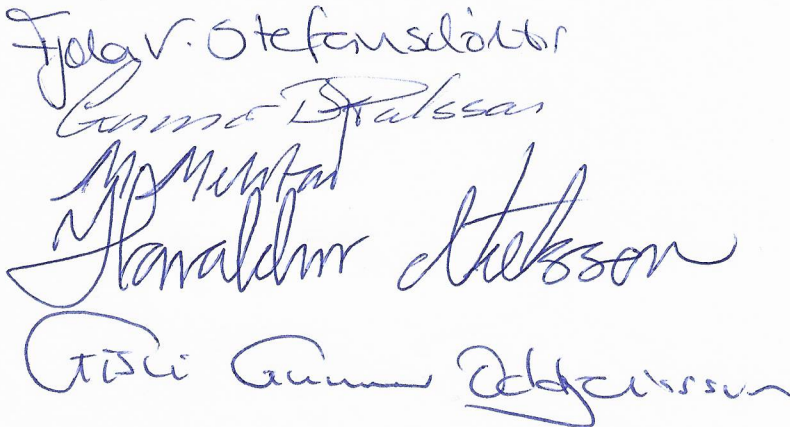 Fjóla V. Stefánsdóttir
Gunnar B Pálsson
Haraldur Níelsson
Gísli Gunnar Oddgeirsson